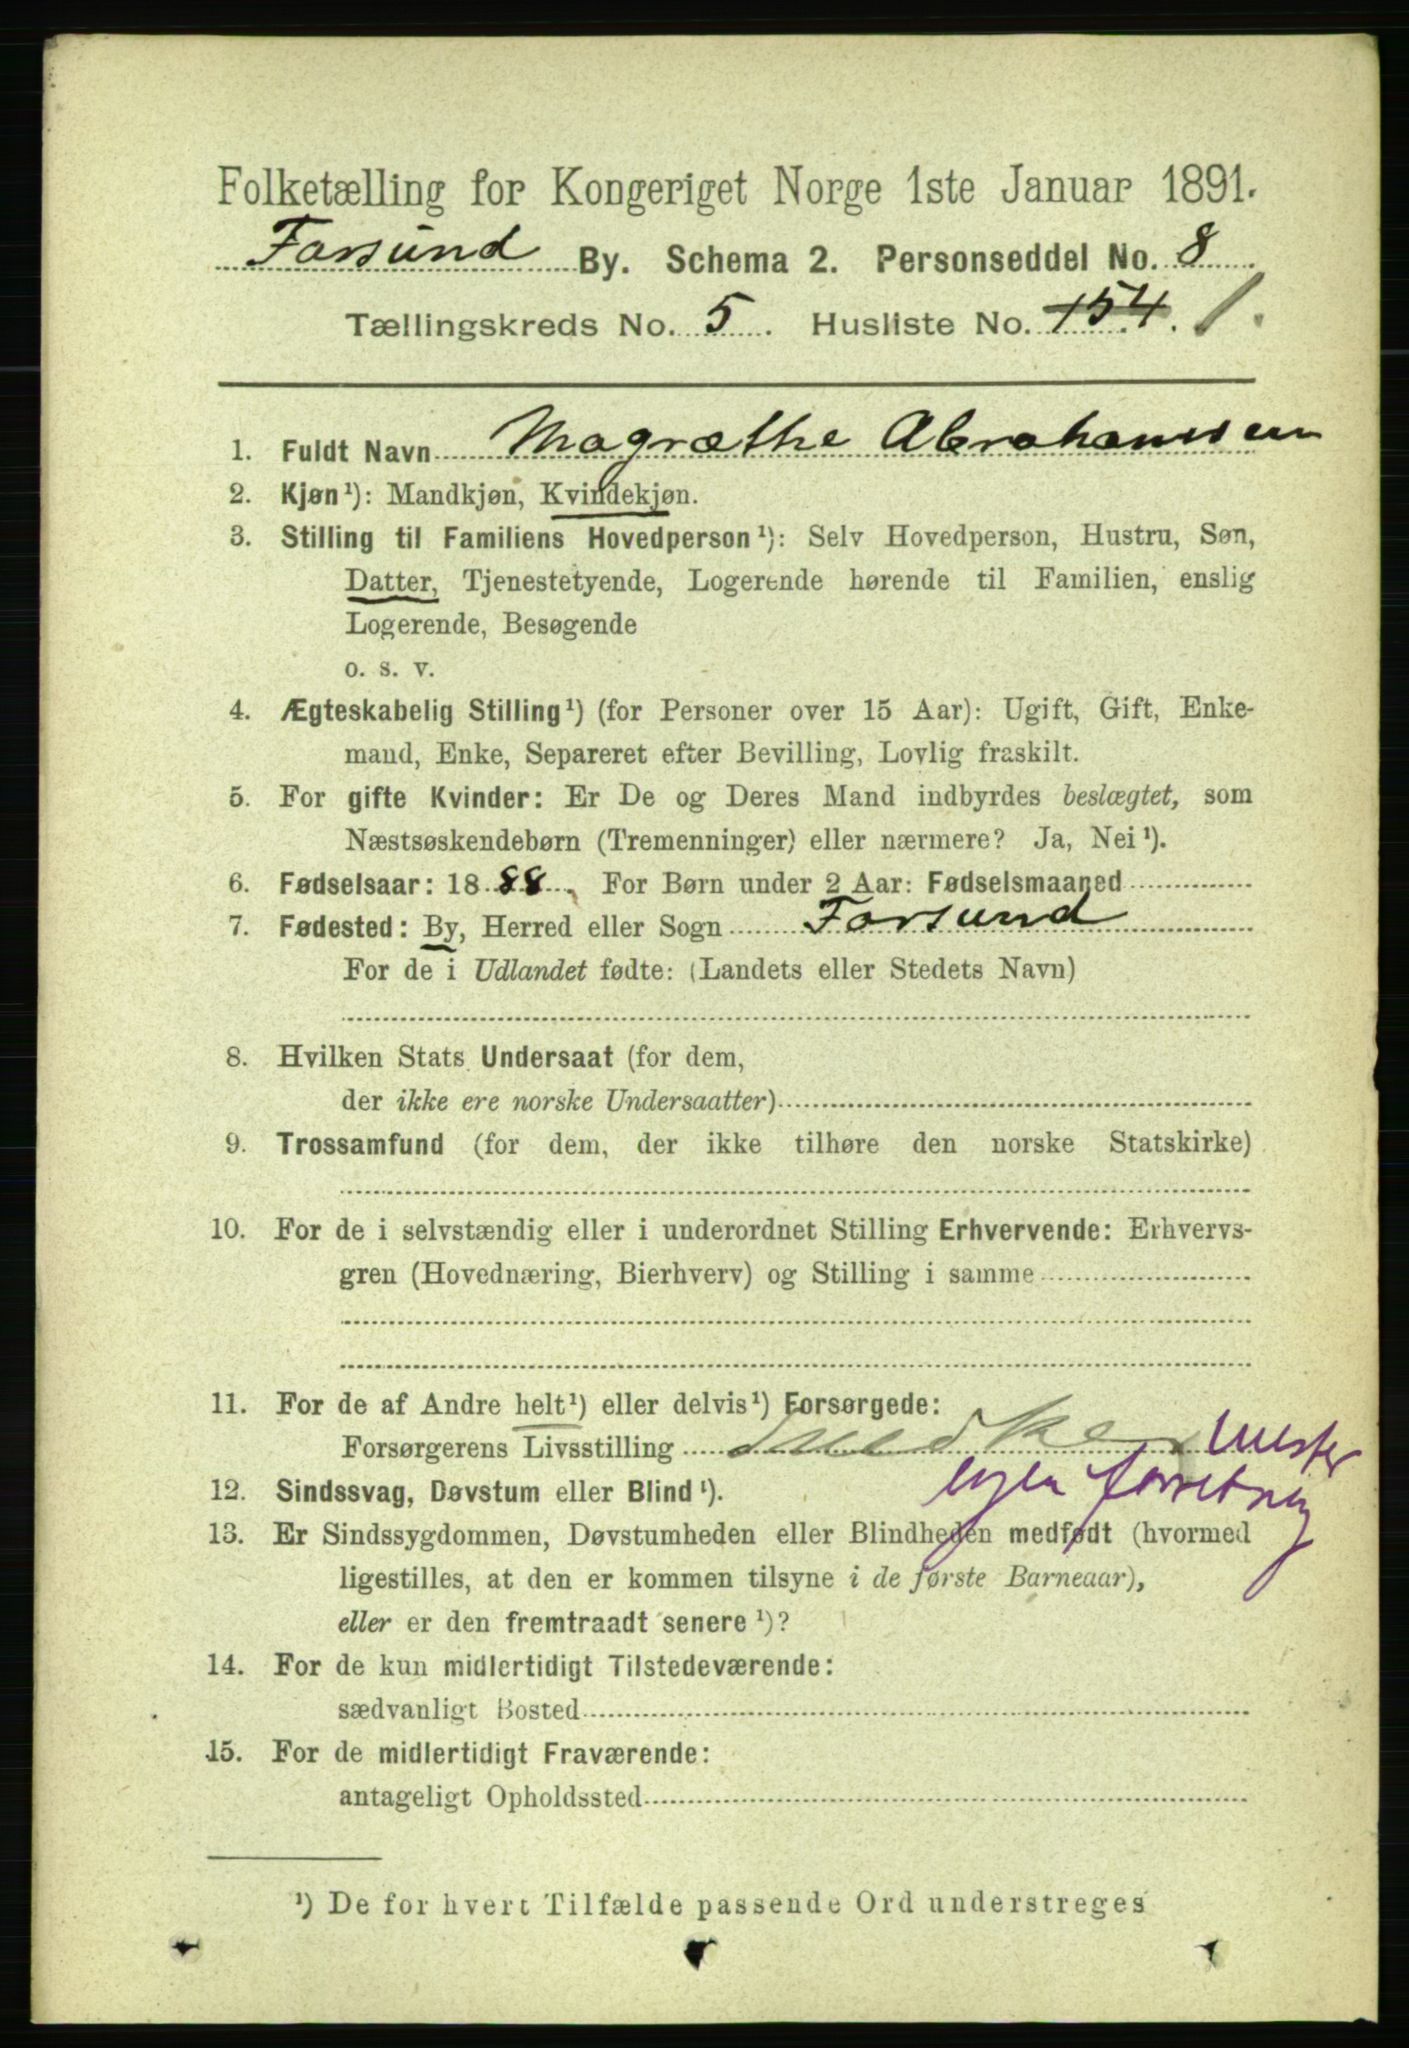 Folketælling for Kongeriget Norge 1ste Januar 1891.
Farsund By. Schema 2. Personseddel No. 8
Tællingskreds No. 5. Husliste No. 154. 1.
1. Fuldt Navn Magræthe Abrahamsen
2. Kjøn¹): Mandkjøn, Kvindekjøn.
3. Stilling til Familiens Hovedperson¹): Selv Hovedperson, Hustru, Søn,
Datter, Tjenestetyende, Logerende hørende til Familien, enslig
Logerende, Besøgende
o. s. v.
4. Ægteskabelig Stilling¹) (for Personer over 15 Aar): Ugift, Gift, Enke-
mand, Enke, Separeret efter Bevilling, Lovlig fraskilt.
5. For gifte Kvinder: Er De og Deres Mand indbyrdes beslægtet, som
Næstsøskendebørn (Tremenninger) eller nærmere? Ja, Nei¹).
6. Fødselsaar: 1888. For Børn under 2 Aar: Fødselsmaaned
7. Fødested: By, Herred eller Sogn Farsund
For de i Udlandet fødte: (Landets eller Stedets Navn)
8. Hvilken Stats Undersaat (for dem,
der ikke ere norske Undersaatter)
9. Trossamfund (for dem, der ikke tilhøre den norske Statskirke)
10. For de i selvstændig eller i underordnet Stilling Erhvervende: Erhvervs-
gren (Hovednæring, Bierhverv) og Stilling i samme
11. For de af Andre helt¹) eller delvis¹) Forsørgede:
Forsørgerens Livsstilling Snedker mester
egen forretning
12. Sindssvag, Døvstum eller Blind¹).
13. Er Sindssygdommen, Døvstumheden eller Blindheden medfødt (hvormed
ligestilles, at den er kommen tilsyne i de første Barneaar),
eller er den fremtraadt senere¹)?
14. For de kun midlertidigt Tilstedeværende:
sædvanligt Bosted
15. For de midlertidigt Fraværende:
antageligt Opholdssted
¹) De for hvert Tilfælde passende Ord understreges